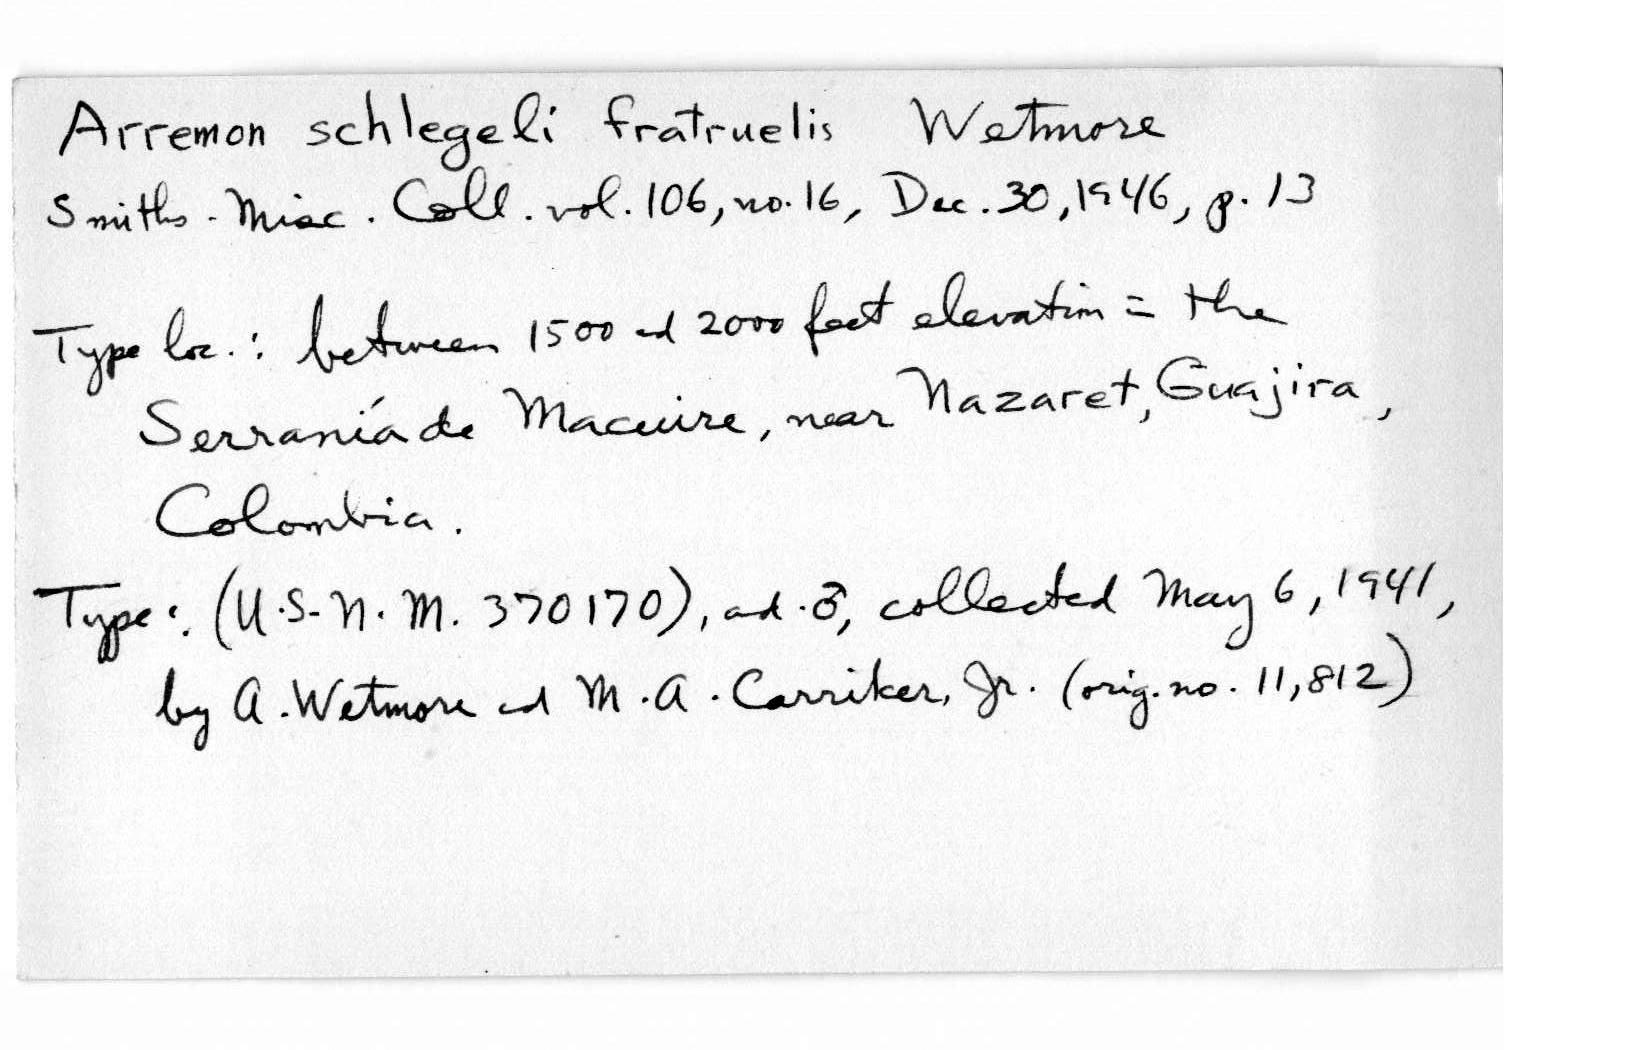 Arremon schlegeli fratruelis Wetmore
Smiths. Misc. Coll. vol. 106, no. 16, Dec. 30, 1946, p. 13
Type loc.: between 1500 and 2000 feet elevation in the
Serranía de Macuire, near Nazaret, Guajira,
Colombia.
Type: (U.S.N.M. 370170), ad. ♂, collected May 6, 1941,
by A. Wetmore and M. A. Carriker, Jr. (orig. no. 11,812)